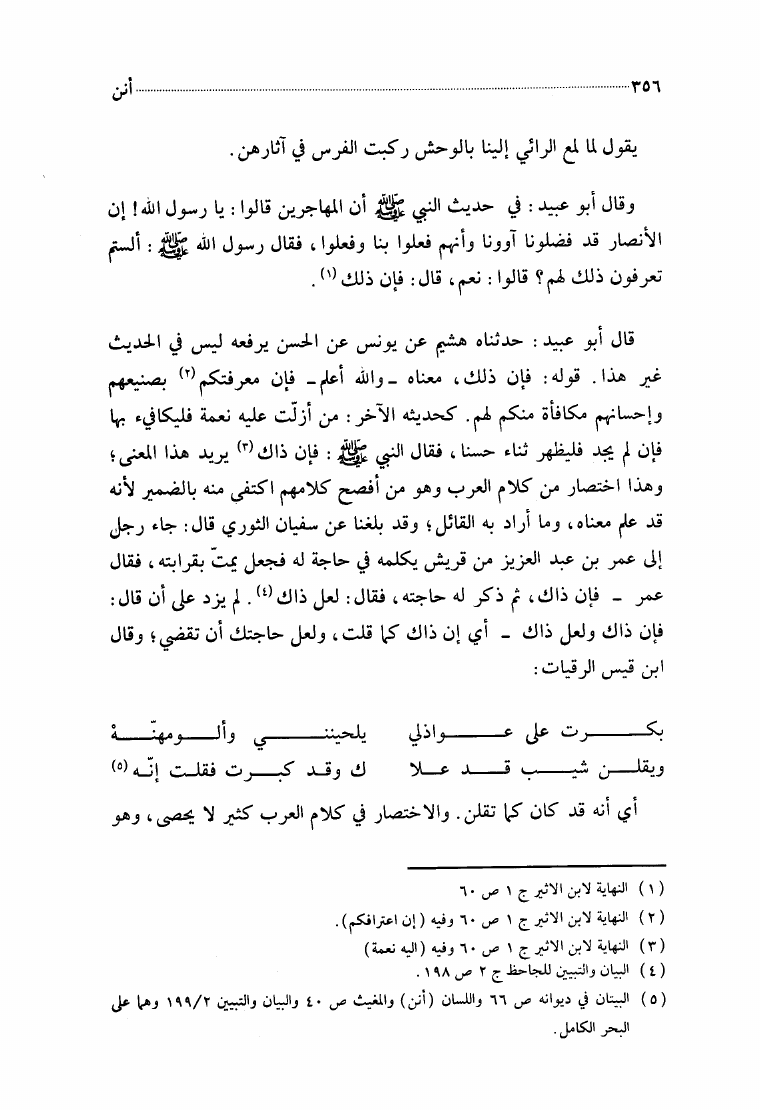 ٣٥٦ أنن
يقول لما لمع الرائي إلينا بالوحش ركبت الفرس في آثارهن.
وقال أبو عبيد: في حديث النبي ﷺ أن المهاجرين قالوا: يا رسول الله! إن
الأنصار قد فضلونا آوونا وأنهم فعلوا بنا وفعلوا، فقال رسول الله ﷺ: ألستم
تعرفون ذلك لهم؟ قالوا: نعم، قال: فإن ذلك(١).
قال أبو عبيد: حدثناه هشيم عن يونس عن الحسن يرفعه ليس في الحديث
غير هذا. قوله: فإن ذلك، معناه -والله أعلم- فإن معرفتكم(٢) بصنيعهم
وإحسانهم مكافأة منكم لهم. كحديثه الآخر: من أزلّت عليه نعمة فليكافيء بها
فإن لم يجد فليظهر ثناء حسنا، فقال النبي ﷺ: فإن ذاك(٣) يريد هذا المعنى؛
وهذا اختصار من كلام العرب وهو من أفصح كلامهم اكتفى منه بالضمير لأنه
قد علم معناه، وما أراد به القائل؛ وقد بلغنا عن سفيان الثوري قال: جاء رجل
إلى عمر بن عبد العزيز من قريش يكلمه في حاجة له فجعل يمتّ بقرابته، فقال
عمر - فإن ذاك، ثم ذكر له حاجته، فقال: لعل ذاك(٤). لم يزد على أن قال:
فإن ذاك ولعل ذاك - أي إن ذاك كما قلت، ولعل حاجتك أن تقضي؛ وقال
ابن قيس الرقيات:
بكـــرت على عـــواذلي يلحيننـــي وألـــومهنّـــهْ
ويقلـــن شيـــب قـــد عـــلا ك وقـد كبـــرت فقلـت إنّـه(٥)
أي أنه قد كان كما تقلن. والاختصار في كلام العرب كثير لا يحصى، وهو
(١) النهاية لابن الاثير ج ١ ص ٦٠
(٢) النهاية لابن الاثير ج ١ ص ٦٠ وفيه (إن اعترافكم).
(٣) النهاية لابن الاثير ج ١ ص ٦٠ وفيه (اليه نعمة)
(٤) البيان والتبيين للجاحظ ج ٢ ص ١٩٨.
(٥) البيتان في ديوانه ص ٦٦ واللسان (أنن) والمغيث ص ٤٠ والبيان والتبيين ١٩٩/٢ وهما على
البحر الكامل.